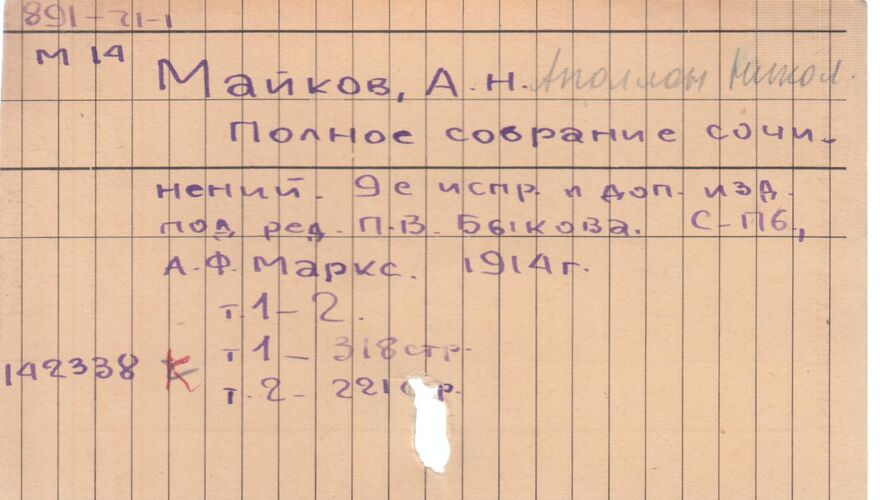 891-71-1
М 14
Майков, А. Н. Аполлон Никол.
Полное собрание сочи-
нений. 9е испр. и доп. изд.
под ред. П.В. Быкова. С-Пб.,
А.Ф. Маркс. 1914 г.
т. 1-2.
т 1 - 318 стр.
142338 К
т. 2 - 221 стр.